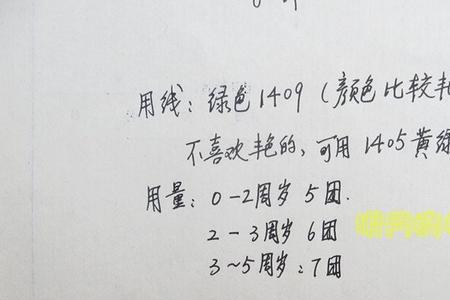 用线：绿色1409（颜色比较
不喜欢艳的，可用1405黄绿
用量：0-2周岁 5团.
2-3周岁 6团
3~5周岁：7团